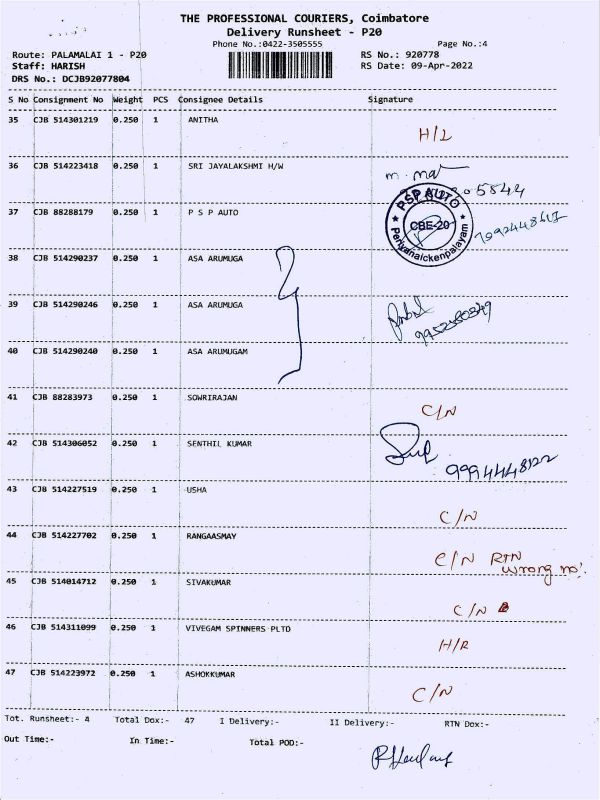 THE PROFESSIONAL COURIERS, Coimbatore
Delivery Runsheet - P20
Phone No.:0422-3505555 Page No.:4
Route: PALAMALAI 1 - P20 RS No.: 920778
Staff: HARISH RS Date: 09-Apr-2022
DRS No.: DCJB92077804
S No Consignment No Weight PCS Consignee Details Signature
35 CJB 514301219 0.250 1 ANITHA
H/L
36 CJB 514223418 0.250 1 SRI JAYALAKSHMI H/W
37 CJB 88288179 0.250 1 P S P AUTO
PSP AUTO
CBE-20
Periyanaickenpalayam
38 CJB 514290237 0.250 1 ASA ARUMUGA
39 CJB 514290246 0.250 1 ASA ARUMUGA
40 CJB 514290240 0.250 1 ASA ARUMUGAM
41 CJB 88283973 0.250 1 SOWRIRAJAN
C/N
42 CJB 514306052 0.250 1 SENTHIL KUMAR
9994448122
43 CJB 514227519 0.250 1 USHA
C/N
44 CJB 514227702 0.250 1 RANGAASMAY
C/N RTN
wrong no!
45 CJB 514014712 0.250 1 SIVAKUMAR
C/N
46 CJB 514311099 0.250 1 VIVEGAM SPINNERS PLTD
H/R
47 CJB 514223972 0.250 1 ASHOKKUMAR
C/N
Tot. Runsheet:- 4 Total Dox:- 47 I Delivery:- II Delivery:- RTN Dox:-
Out Time:- In Time:- Total POD:-